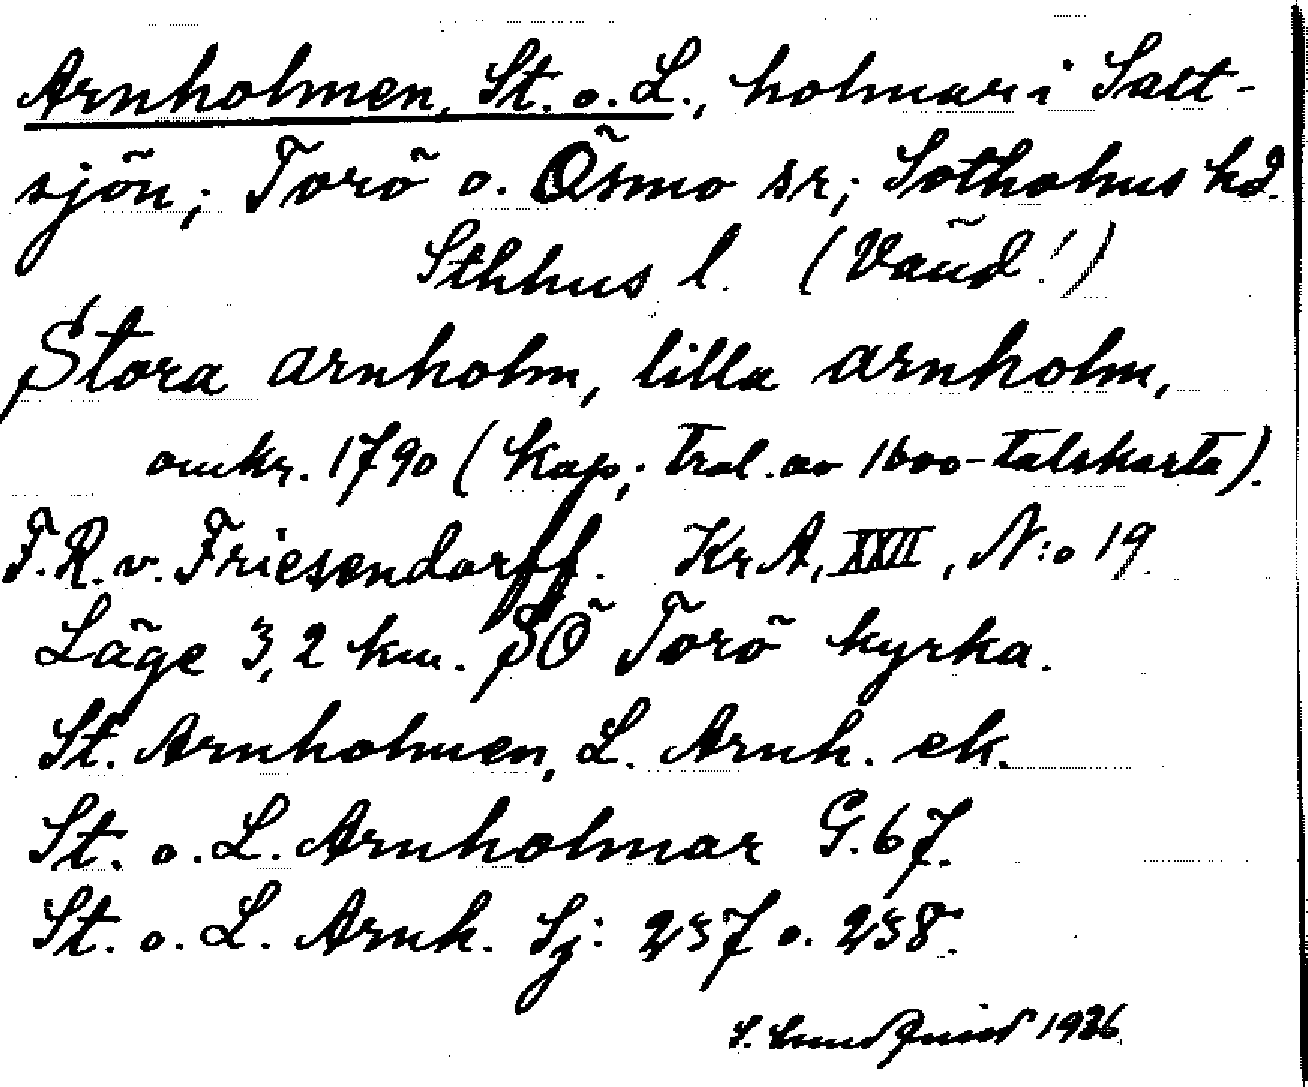 Arnholmen, St. o. L., holmar i Salt-
sjön; Torö o. Ösmo sr; Sotholms hd.
Sthlms l. (Vänd!)
Stora arnholm, lilla arnholm,
omkr. 1790 (Kap; trol. av 1600-talskarta).
F. R. v. Friesendorff. Kr A, XXII, N:o 19
Läge 3,2 km. SÖ Torö kyrka.
St. Arnholmen, L. Arnh. ek.
St. o. L. Arnholmar G. 67.
St. o. L. Arnh. Sj: 237 o. 238.
S. Lundquist 1926